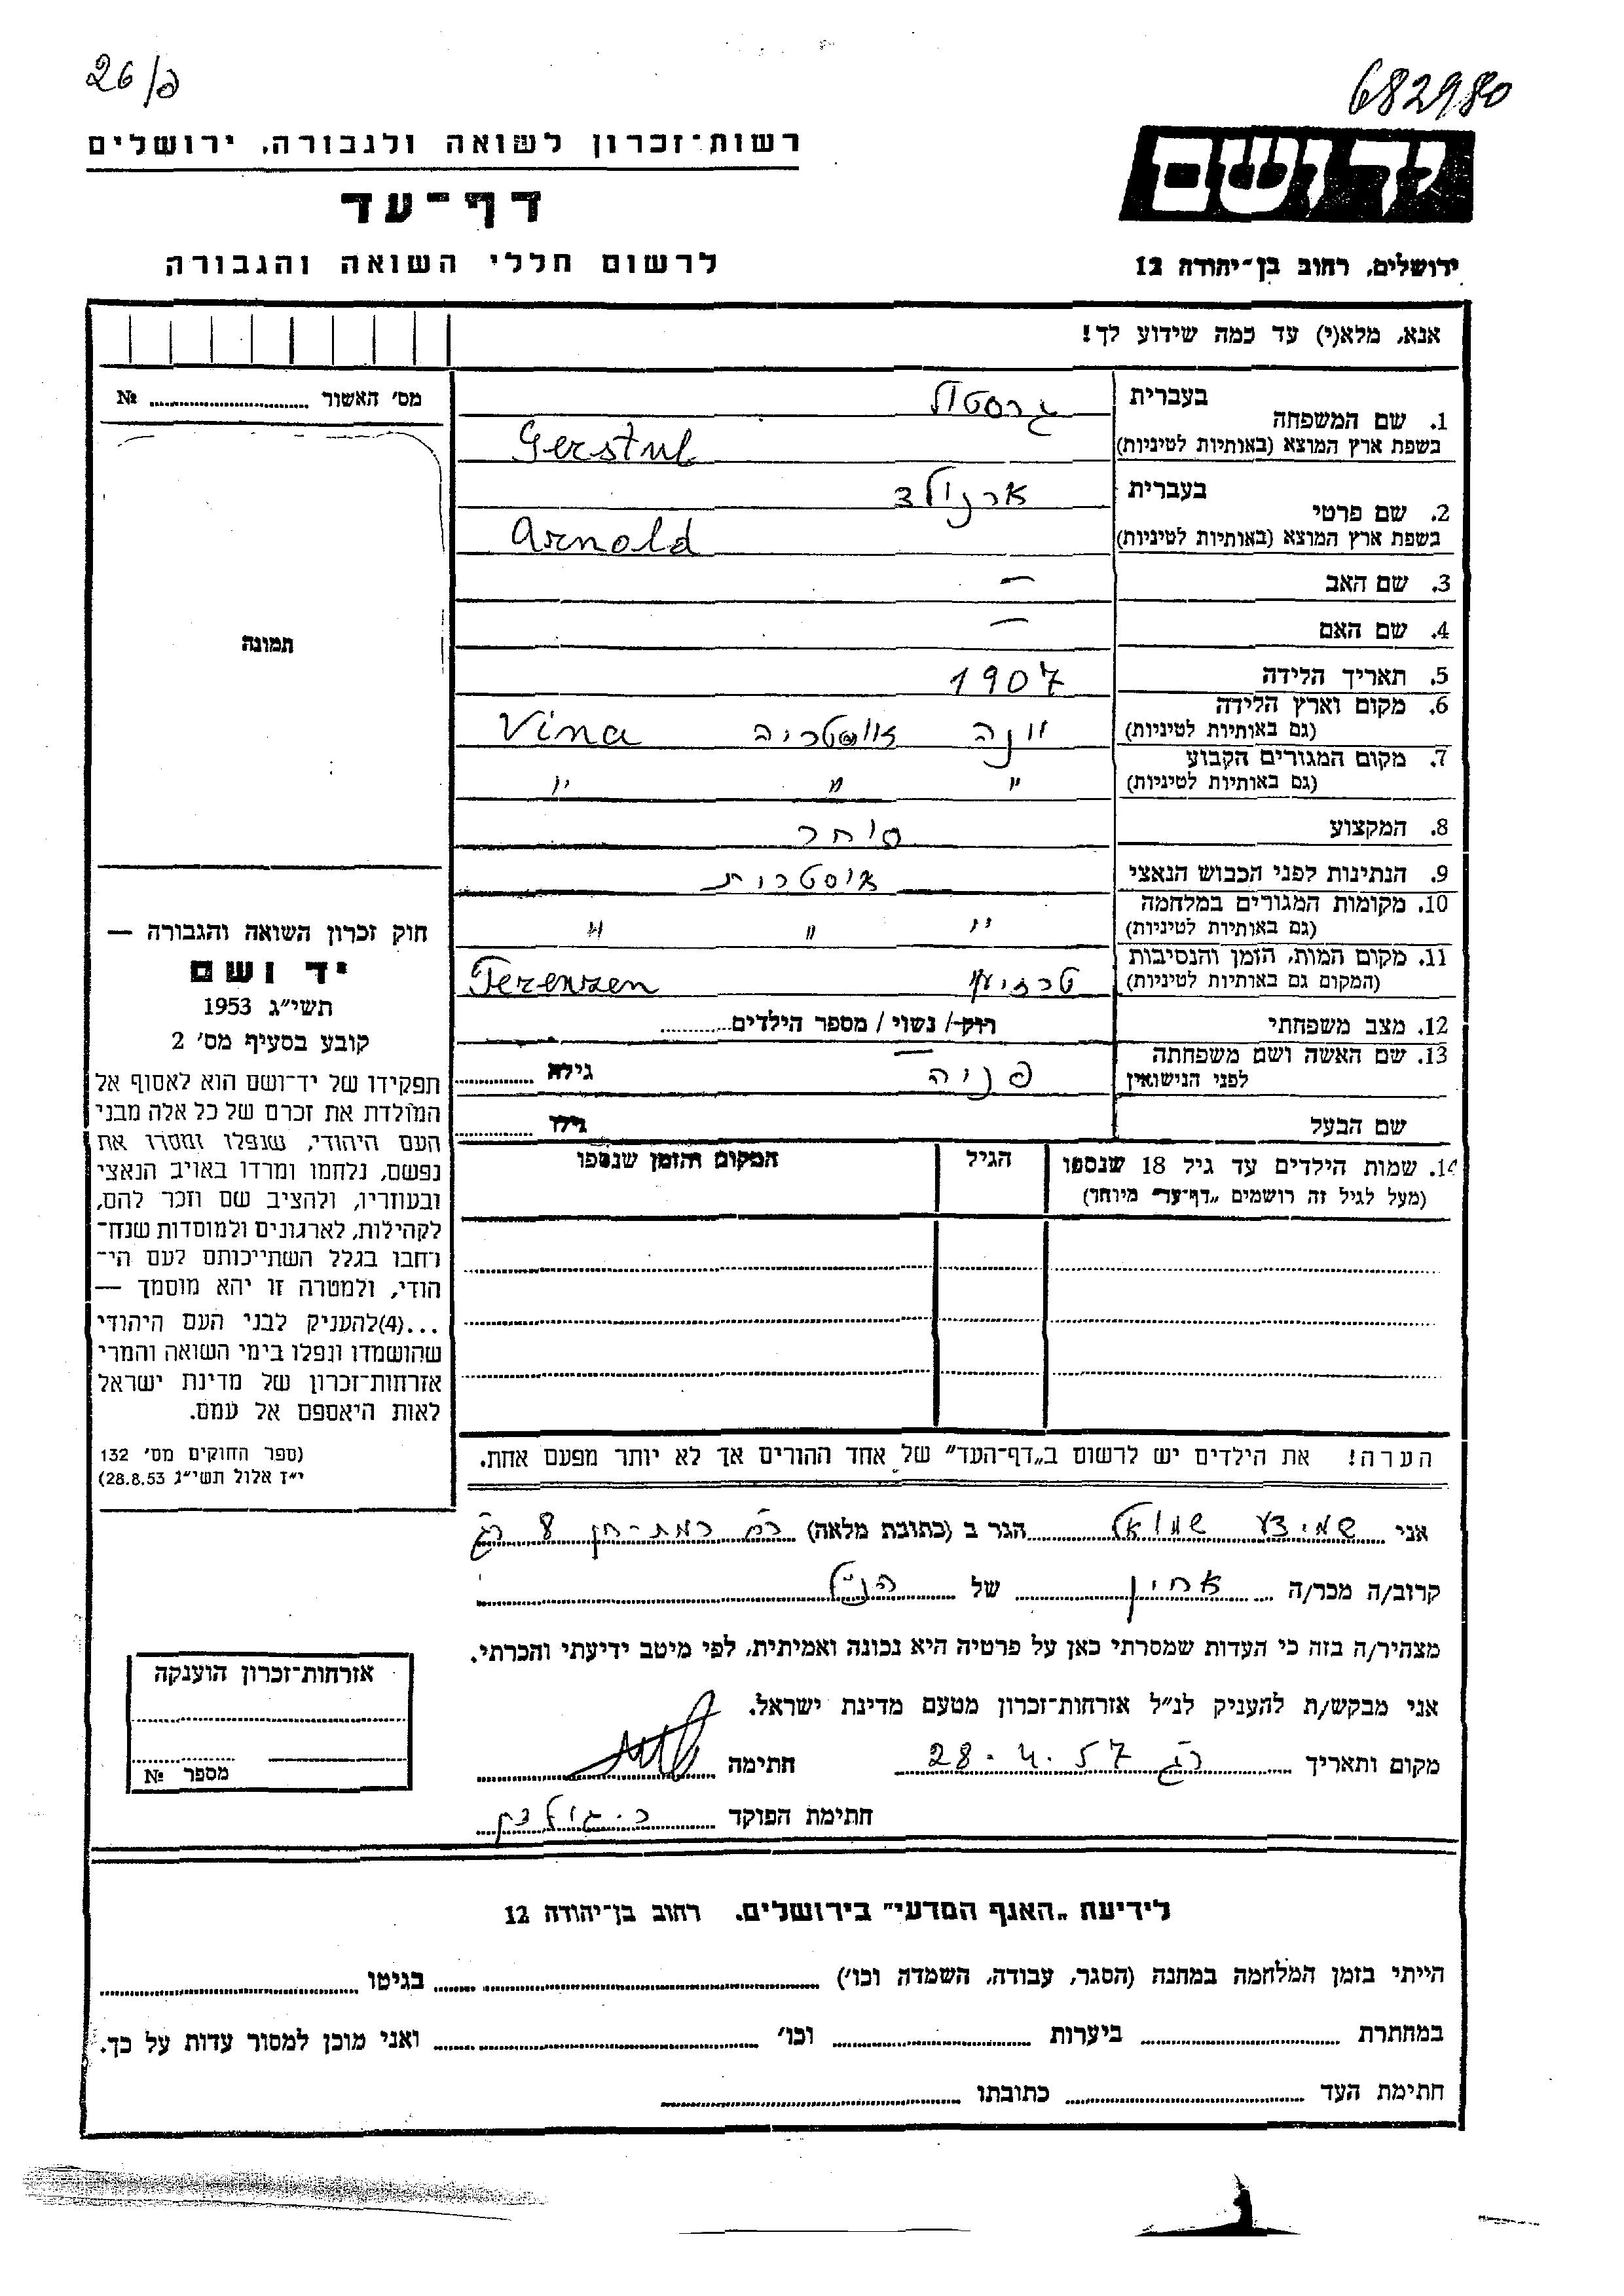 26/פ
682980
רשות־זכרון לשואה ולגבורה, ירושלים
דף־עד
לרשום חללי השואה והגבורה
יד ושם
ירושלים, רחוב בן־יהודה 12
אנא, מלא(י) עד כמה שידוע לך!
מס׳ האשור № 
תמונה
1. שם המשפחה בעברית גרסטול
בשפת ארץ המוצא (באותיות לטיניות) Gerstul
2. שם פרטי בעברית ארנולד
בשפת ארץ המוצא (באותיות לטיניות) Arnold
3. שם האב —
4. שם האם —
5. תאריך הלידה 1907
6. מקום וארץ הלידה (גם באותיות לטיניות) וינה אוסטריה Vina
7. מקום המגורים הקבוע (גם באותיות לטיניות) " " "
8. המקצוע סוחר
9. הנתינות לפני הכבוש הנאצי אוסטרית
10. מקומות המגורים במלחמה (גם באותיות לטיניות) " " "
11. מקום המות, הזמן והנסיבות (המקום גם באותיות לטיניות) Terenzen
12. מצב משפחתי רוק / נשוי / מספר הילדים
13. שם האשה ושם משפחתה לפני הנישואין פניה — גילה
שם הבעל גילו
14. שמות הילדים עד גיל 18 שנספו (מעל לגיל זה רושמים „דף־עד״ מיוחד)
הגיל
המקום והזמן שנספו
הערה! את הילדים יש לרשום ב„דף־העד״ של אחד ההורים אך לא יותר מפעם אחת.
חוק זכרון השואה והגבורה —
יד ושם
תשי״ג 1953
קובע בסעיף מס׳ 2
תפקידו של יד־ושם הוא לאסוף אל
המולדת את זכרם של כל אלה מבני
העם היהודי, שנפלו ומסרו את
נפשם, נלחמו ומרדו באויב הנאצי
ובעוזריו, ולהציב שם וזכר להם,
לקהילות, לארגונים ולמוסדות שנח־
רבו בגלל השתייכותם לעם הי־
הודי, ולמטרה זו יהא מוסמך —
...(4)להעניק לבני העם היהודי
שהושמדו ונפלו בימי השואה והמרי
אזרחות־זכרון של מדינת ישראל
לאות היאספם אל עמם.
(ספר החוקים מס׳ 132
י״ז אלול תשי״ג 28.8.53)
אני שמידע שמואל הגר ב (כתובת מלאה) רח רמת-חן 8 רג
קרוב/ה מכר/ה אחין של הנ״ל
מצהיר/ה בזה כי העדות שמסרתי כאן על פרטיה היא נכונה ואמיתית, לפי מיטב ידיעתי והכרתי.
אני מבקש/ת להעניק לנ״ל אזרחות־זכרון מטעם מדינת ישראל.
מקום ותאריך רג 28.4.57 חתימה
חתימת הפוקד
אזרחות־זכרון הוענקה
מספר №
לידיעת „האגף המדעי״ בירושלים. רחוב בן־יהודה 12
הייתי בזמן המלחמה במחנה (הסגר, עבודה, השמדה וכו׳) בגיטו
במחתרת ביערות וכו׳ ואני מוכן למסור עדות על כך.
חתימת העד כתובתו